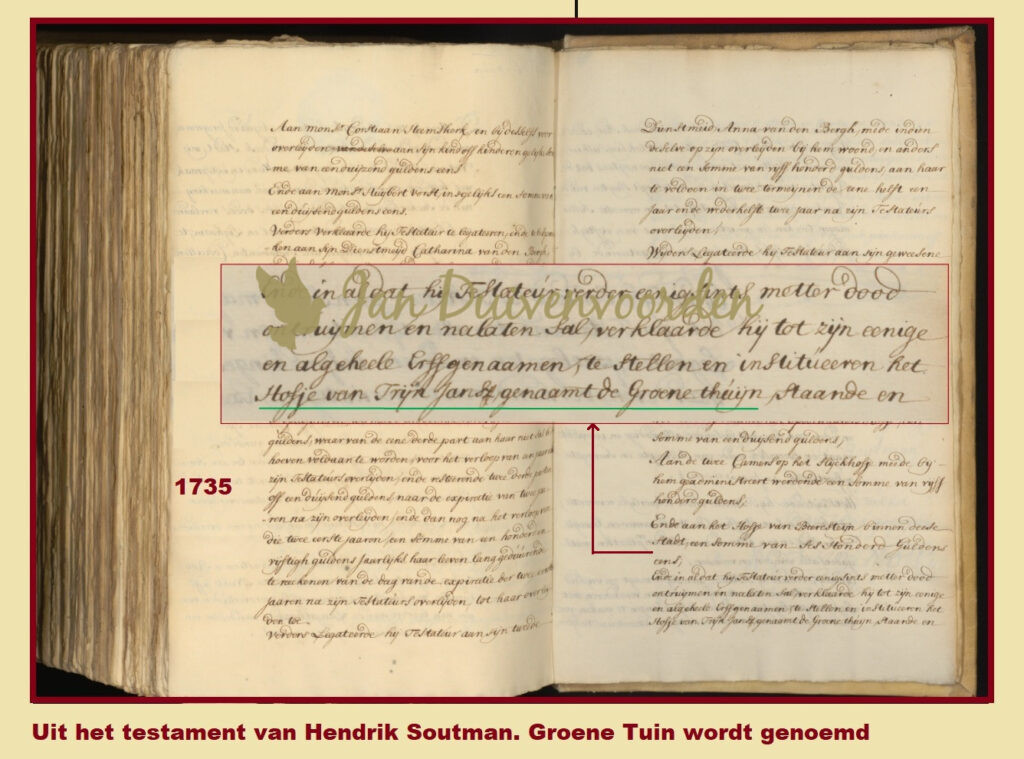 Aan monsr. Corstiaan Heemskerk, en bij desselfs voor
overlijden van deselve aan sijn kind off kinderen gelijke som
-me van een duijzend guldens eens.
Ende aan monsr. Huijbert Vorst, insgelijks een somme van
een duijsend guldens eens.
Verders Verklaarde hij Testateur te legateeren, ende te be
ken aan sijn Dienstmeijd Catharina van den Bergh,
guldens, waar van de eene derde part aan haar niet sal b
hoeven voldaan te worden, voor het verloop van een jaar na
zijn Testateurs overlijden, ende resteerende twee derde parten
off een duijsend guldens naar de expiratie van twee ja-
-ren na zijn overlijden, ende dan nog na het verloop van
die twee eerste jaaren, een somme van een honderd en
vijftigh guldens Jaarlijks haar leven lang geduurende
te reekenen van de dag van de expiratie der twee eerste
jaaren na zijn Testateurs overlijden, tot haar overlij
den toe.
Verders Legateerde hij Testateur aan sijn tweede
Dienstmeid, Anna van den Bergh, mede indien
deselve op zijn overlijden bij hem woond, en anders
niet een somme van vijff honderd guldens, aan haar
te voldoen in twee termijnen de eene helft een
Jaar ende wederhelfte twee jaar na zijn Testateurs
overlijden,
Wijders Legateerde hij Testateur aan sijn geweesene
Jan Duivenvoorden
Ende in al dat hij Testateur verder eenigsints metter dood
ontruijmen en nalaten sal, verklaarde hij tot zijn eenige
en algeheele Erffgenaamen, te stellen en institueeren het
Hofje van Trijn Jansz genaamt de Groene thuijn, staande en
Somme van een duijsend guldens,
Aan de twee Camers op het Slijckhoff meede bij
hem geadministreert wordende een somme van vijff
honderd guldens,
Ende aan het Hofje van Beeresteijn binnen deese
Stadt, een somme van Ses Honderd Guldens
eens,
Ende in al dat hij Testateur verder eenigsints metter dood
ontruijmen en nalaten Sal, verklaarde hij tot zijn eenige
en algeheele Erffgenaamen, te stellen en institueren het
Hofje van Trijn Jansz genaamt de Groene thuijn, staande en
1735
Uit het testament van Hendrik Soutman. Groene Tuin wordt genoemd